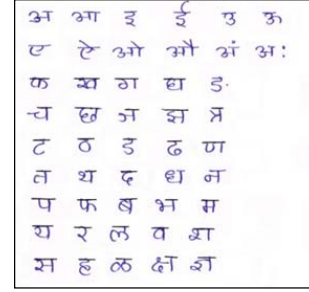 अ आ इ ई उ ऊ
ए ऐ ओ औ अं अः
क ख ग घ ङ
च छ ज झ ञ
ट ठ ड ढ ण
त थ द ध न
प फ ब भ म
य र ल व श
स ह ळ क्ष ज्ञ